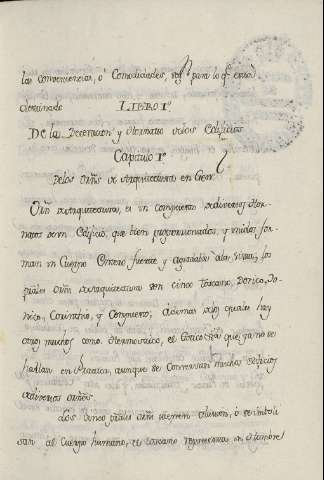 las conveniencias, ó Comodidades, para lo qe. esta
destinado LIBRO I.º
De la Decoracion y Hornatos de los Edificios
Capitulo I.º
De los Orñs de Arquitectura en Genl.
Orñ de Arquitectura, es un Conjunto de diversos Hor-
natos de un Edificio, que bien proporcionados, y unidos for-
man un Cuerpo Entero fuerte y agradable à la Vista, los
quales Orñs de Arquitectura son Cinco Toscano, Dorico, Jo-
nico, Corintio, y Compuesto; àdemas de los quales hay
otros muchos como el Gotico que ya no se
hallan en Practica, aunque se Conservan muchos edificios
de diversos orñs.
Los Cinco Orñs ó se simboli-
san al Cuerpo humano, el toscano representa un Hombre